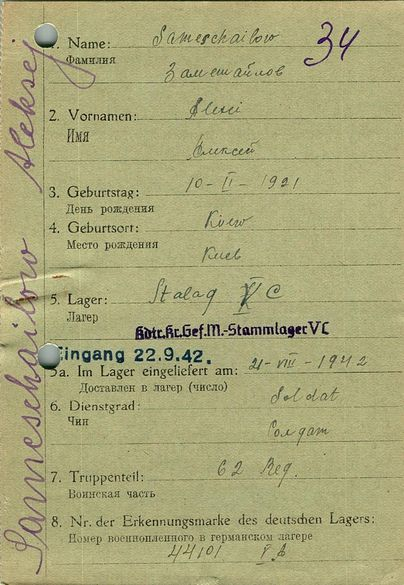 34
1. Name: Sameschailow
Фамилия
Замешайлов
2. Vornamen: Alexi
Имя
Алексей
3. Geburtstag: 10-II-1921
День рождения
4. Geburtsort: Kiew
Место рождения
Киев
5. Lager: Stalag V C
Лагер
Kdtr.Kr.Gef.M.-Stammlager V C
Eingang 22.9.42.
5a. Im Lager eingeliefert am: 21-VIII-1942
Доставлен в лагер (число)
6. Dienstgrad: Soldat
Чин
Солдат
7. Truppenteil: 62 Reg.
Воинская часть
8. Nr. der Erkennungsmarke des deutschen Lagers:
Номер военнопленного в германском лагере
44101 V A
Sameschailow Aleksej